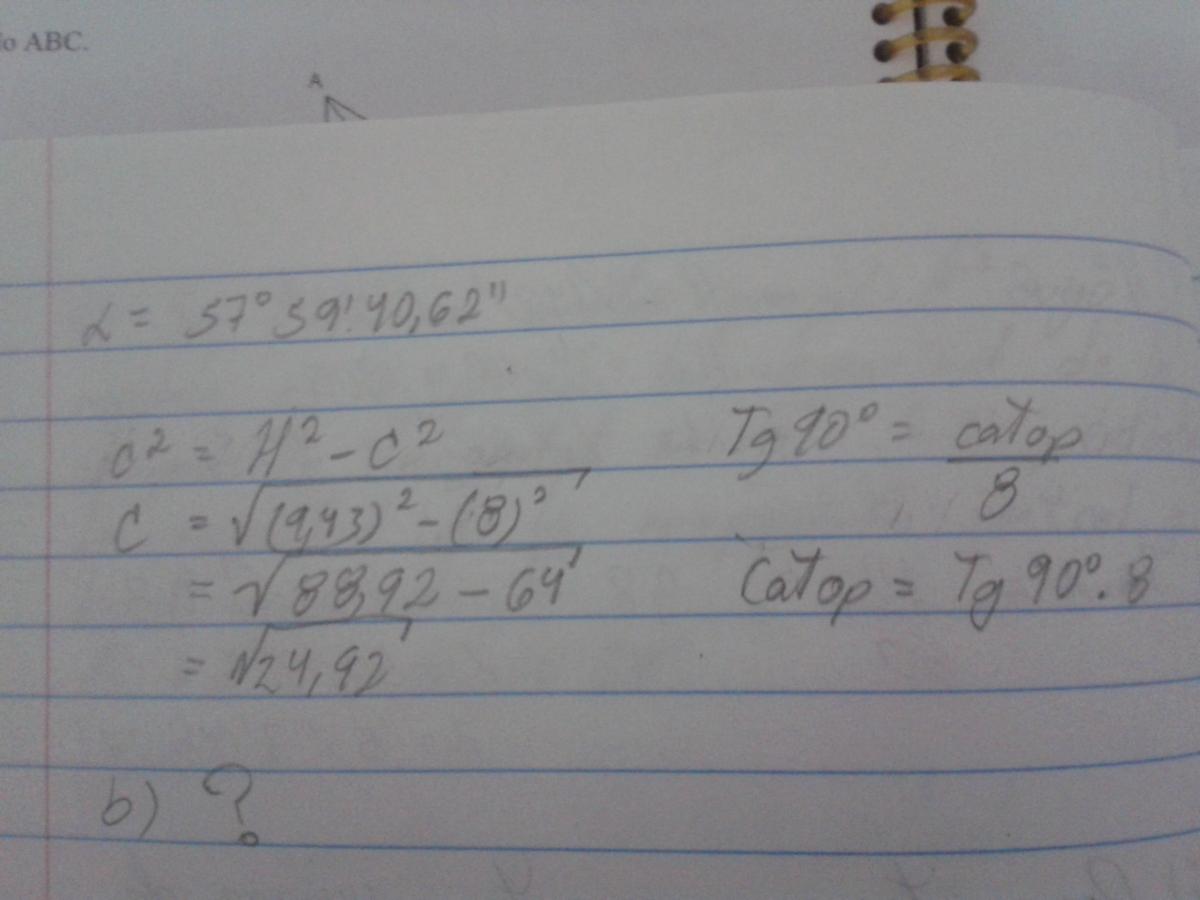 lo ABC.
A
α = 57° 59' 40,62"
c² = H² - c²
C = √(9,43)² - (8)²
= √88,92 - 64
= √24,92
Tg 90° = catop
8
Catop = Tg 90° . 8
b) ?